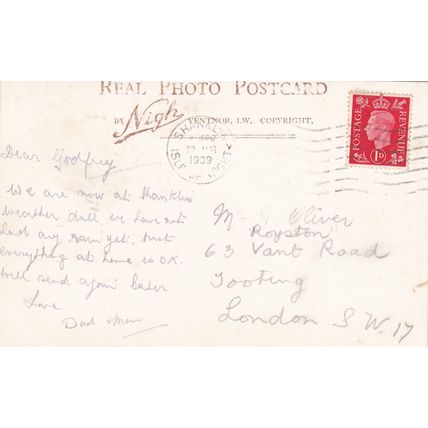 REAL PHOTO POSTCARD
BY Nigh VENTNOR, I.W. COPYRIGHT.
SHANKLIN
1939
ISLE OF WIGHT
POSTAGE
REVENUE
1D
Dear Godfrey
We are now at Shanklin
weather dull, we have not
had any rain yet. trust
everything at home is O.K.
will send again later
Love
Dad & Mum
Mr G. Oliver
Royston
63 Vant Road
Tooting
London S.W.17